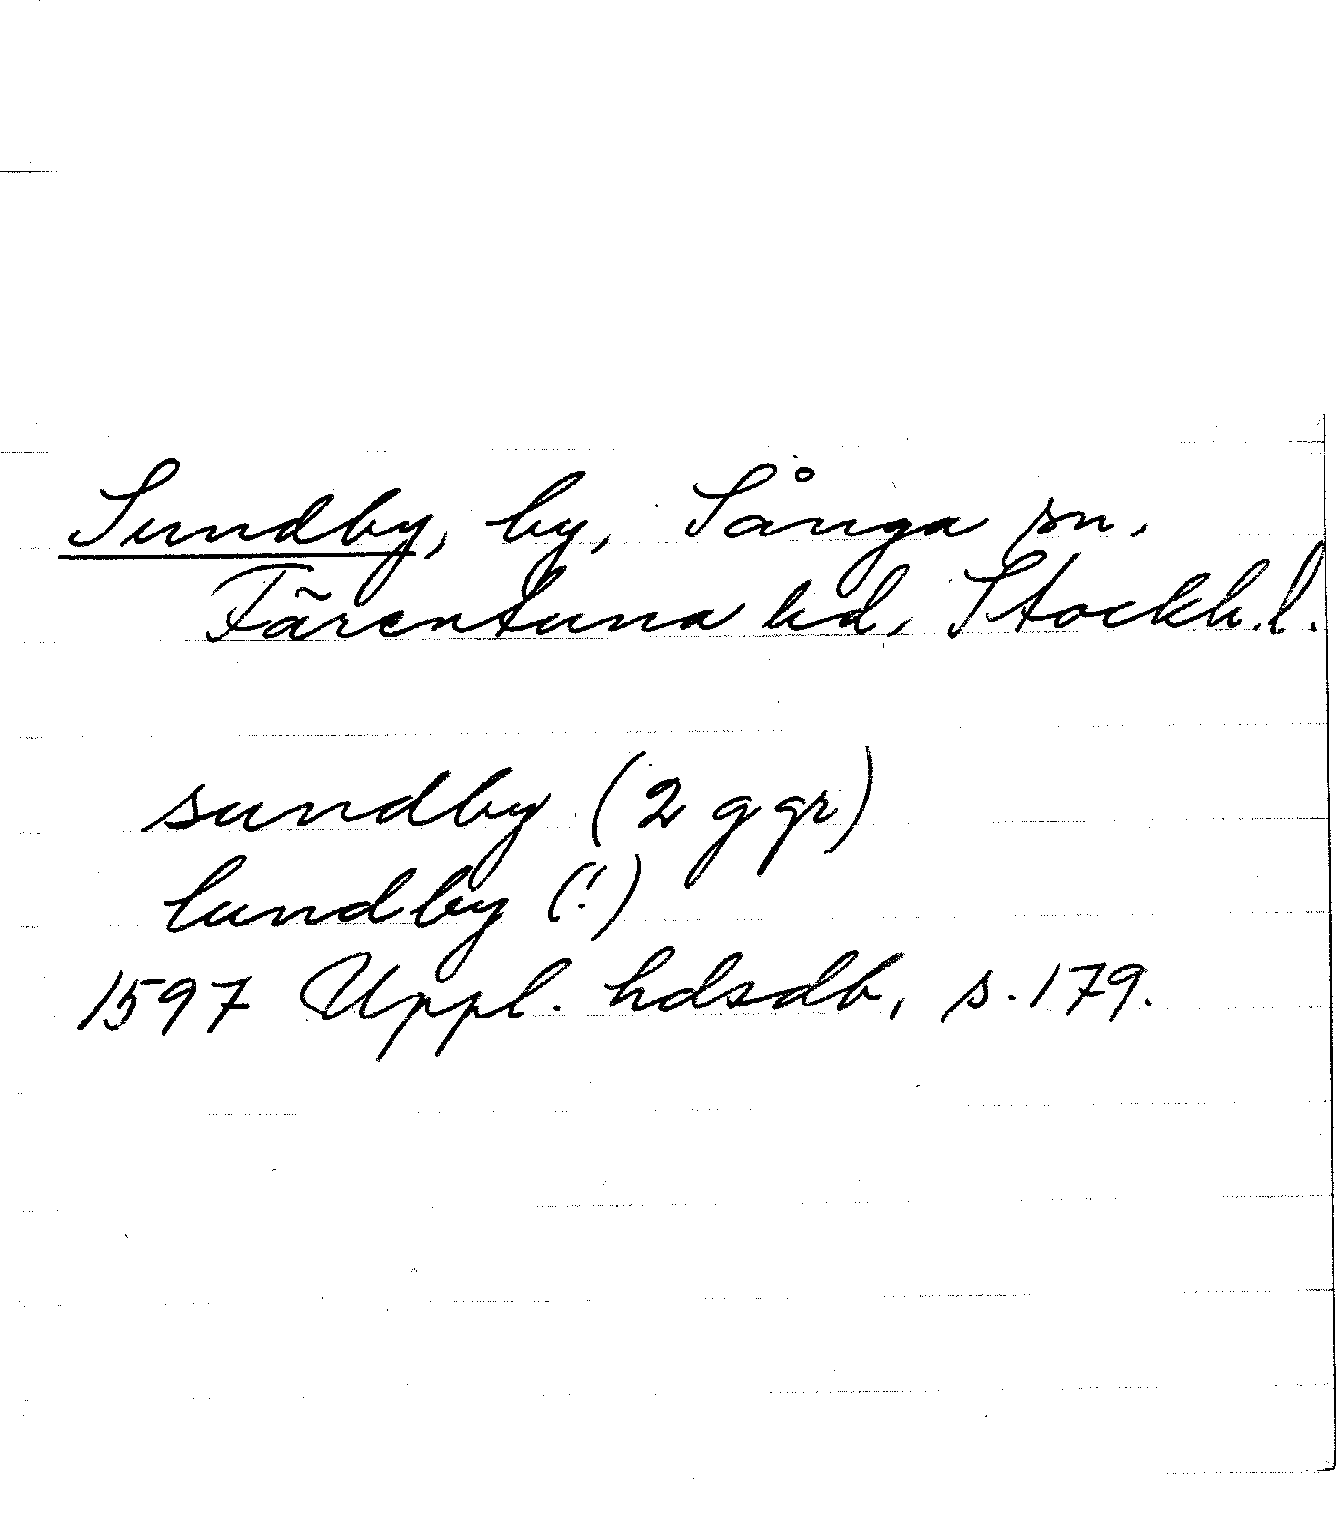 Sundby, by, Sånga sn.
Färentuna hd, Stockh.l.
sundby (2 ggr)
lundby (!)
1597 Uppl. hdsdb, s. 179.